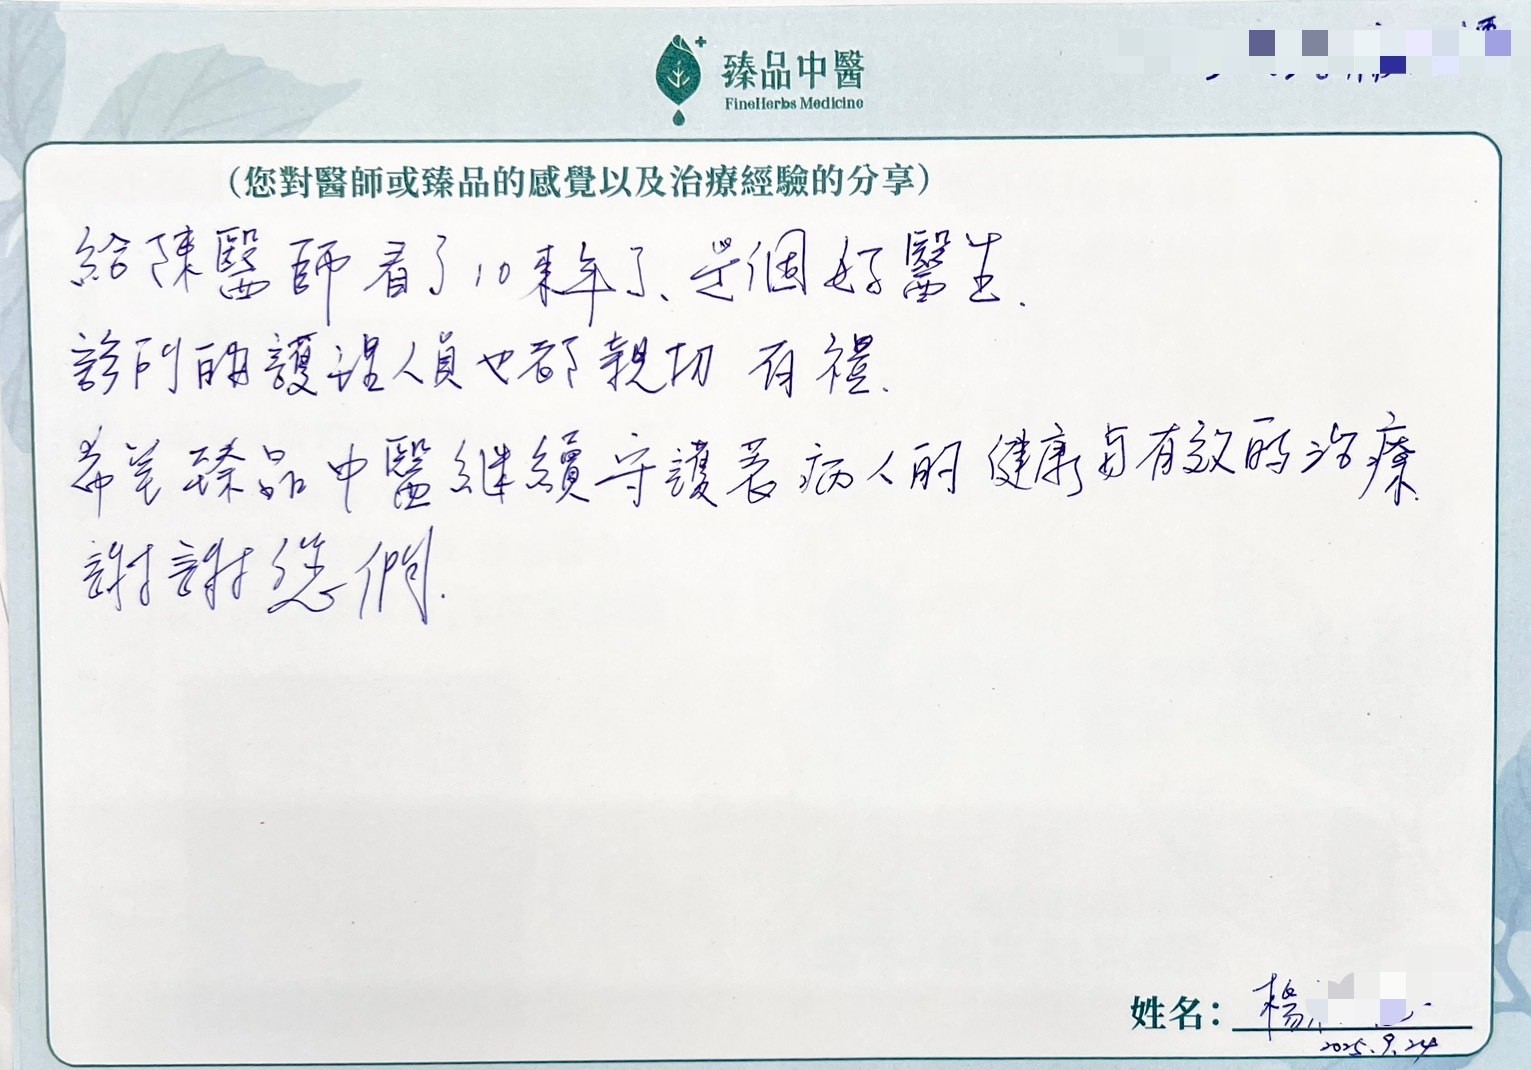 臻品中醫
FineHerbs Medicine
(您對醫師或臻品的感覺以及治療經驗的分享)
給陳醫師看了10來年了、是個好醫生.
診所的護理人員也都親切 有禮.
希望臻品中醫繼續守護著病人的健康與有效的治療
謝謝您們.
姓名: 楊
2025.9.24